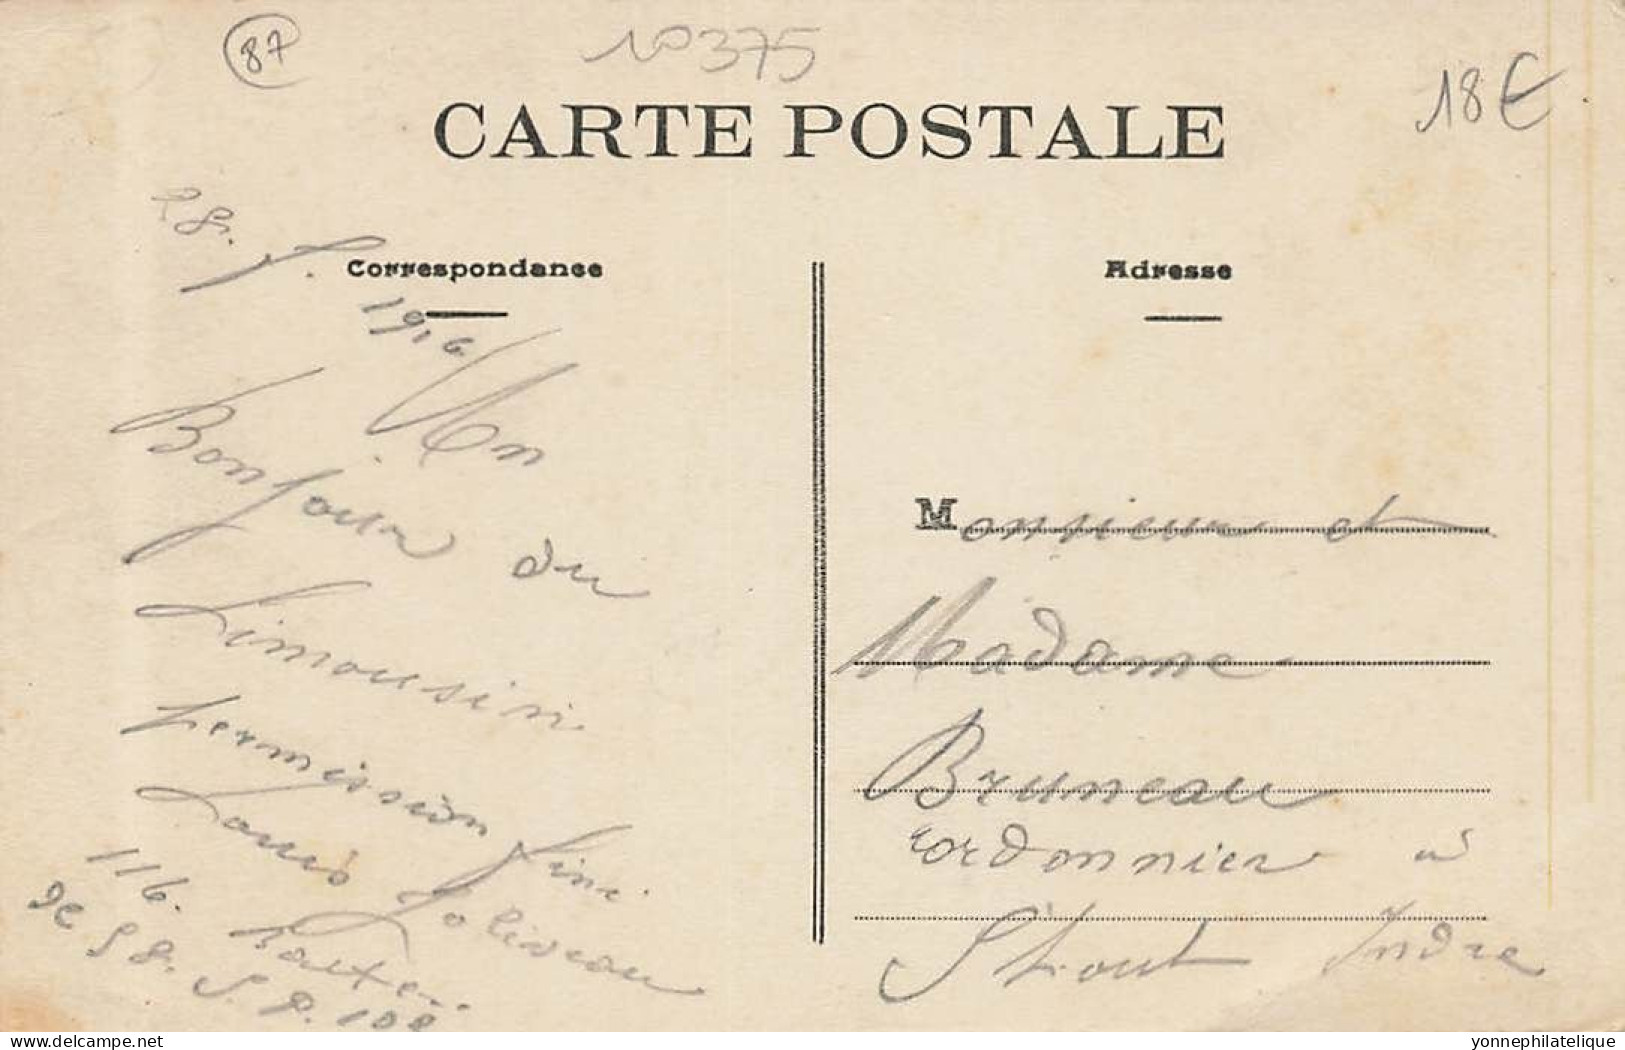 87
N° 375
18 €
CARTE POSTALE
Correspondance
Adresse
1916
Un
Bonjour du
Limousin
permission fini
Louis Joliveau
116. Batterie
de 58. S. P. 108
Monsieur et
Madame
Bruneau
cordonnier à
Indre
www.delcampe.net
yonnephilatelique